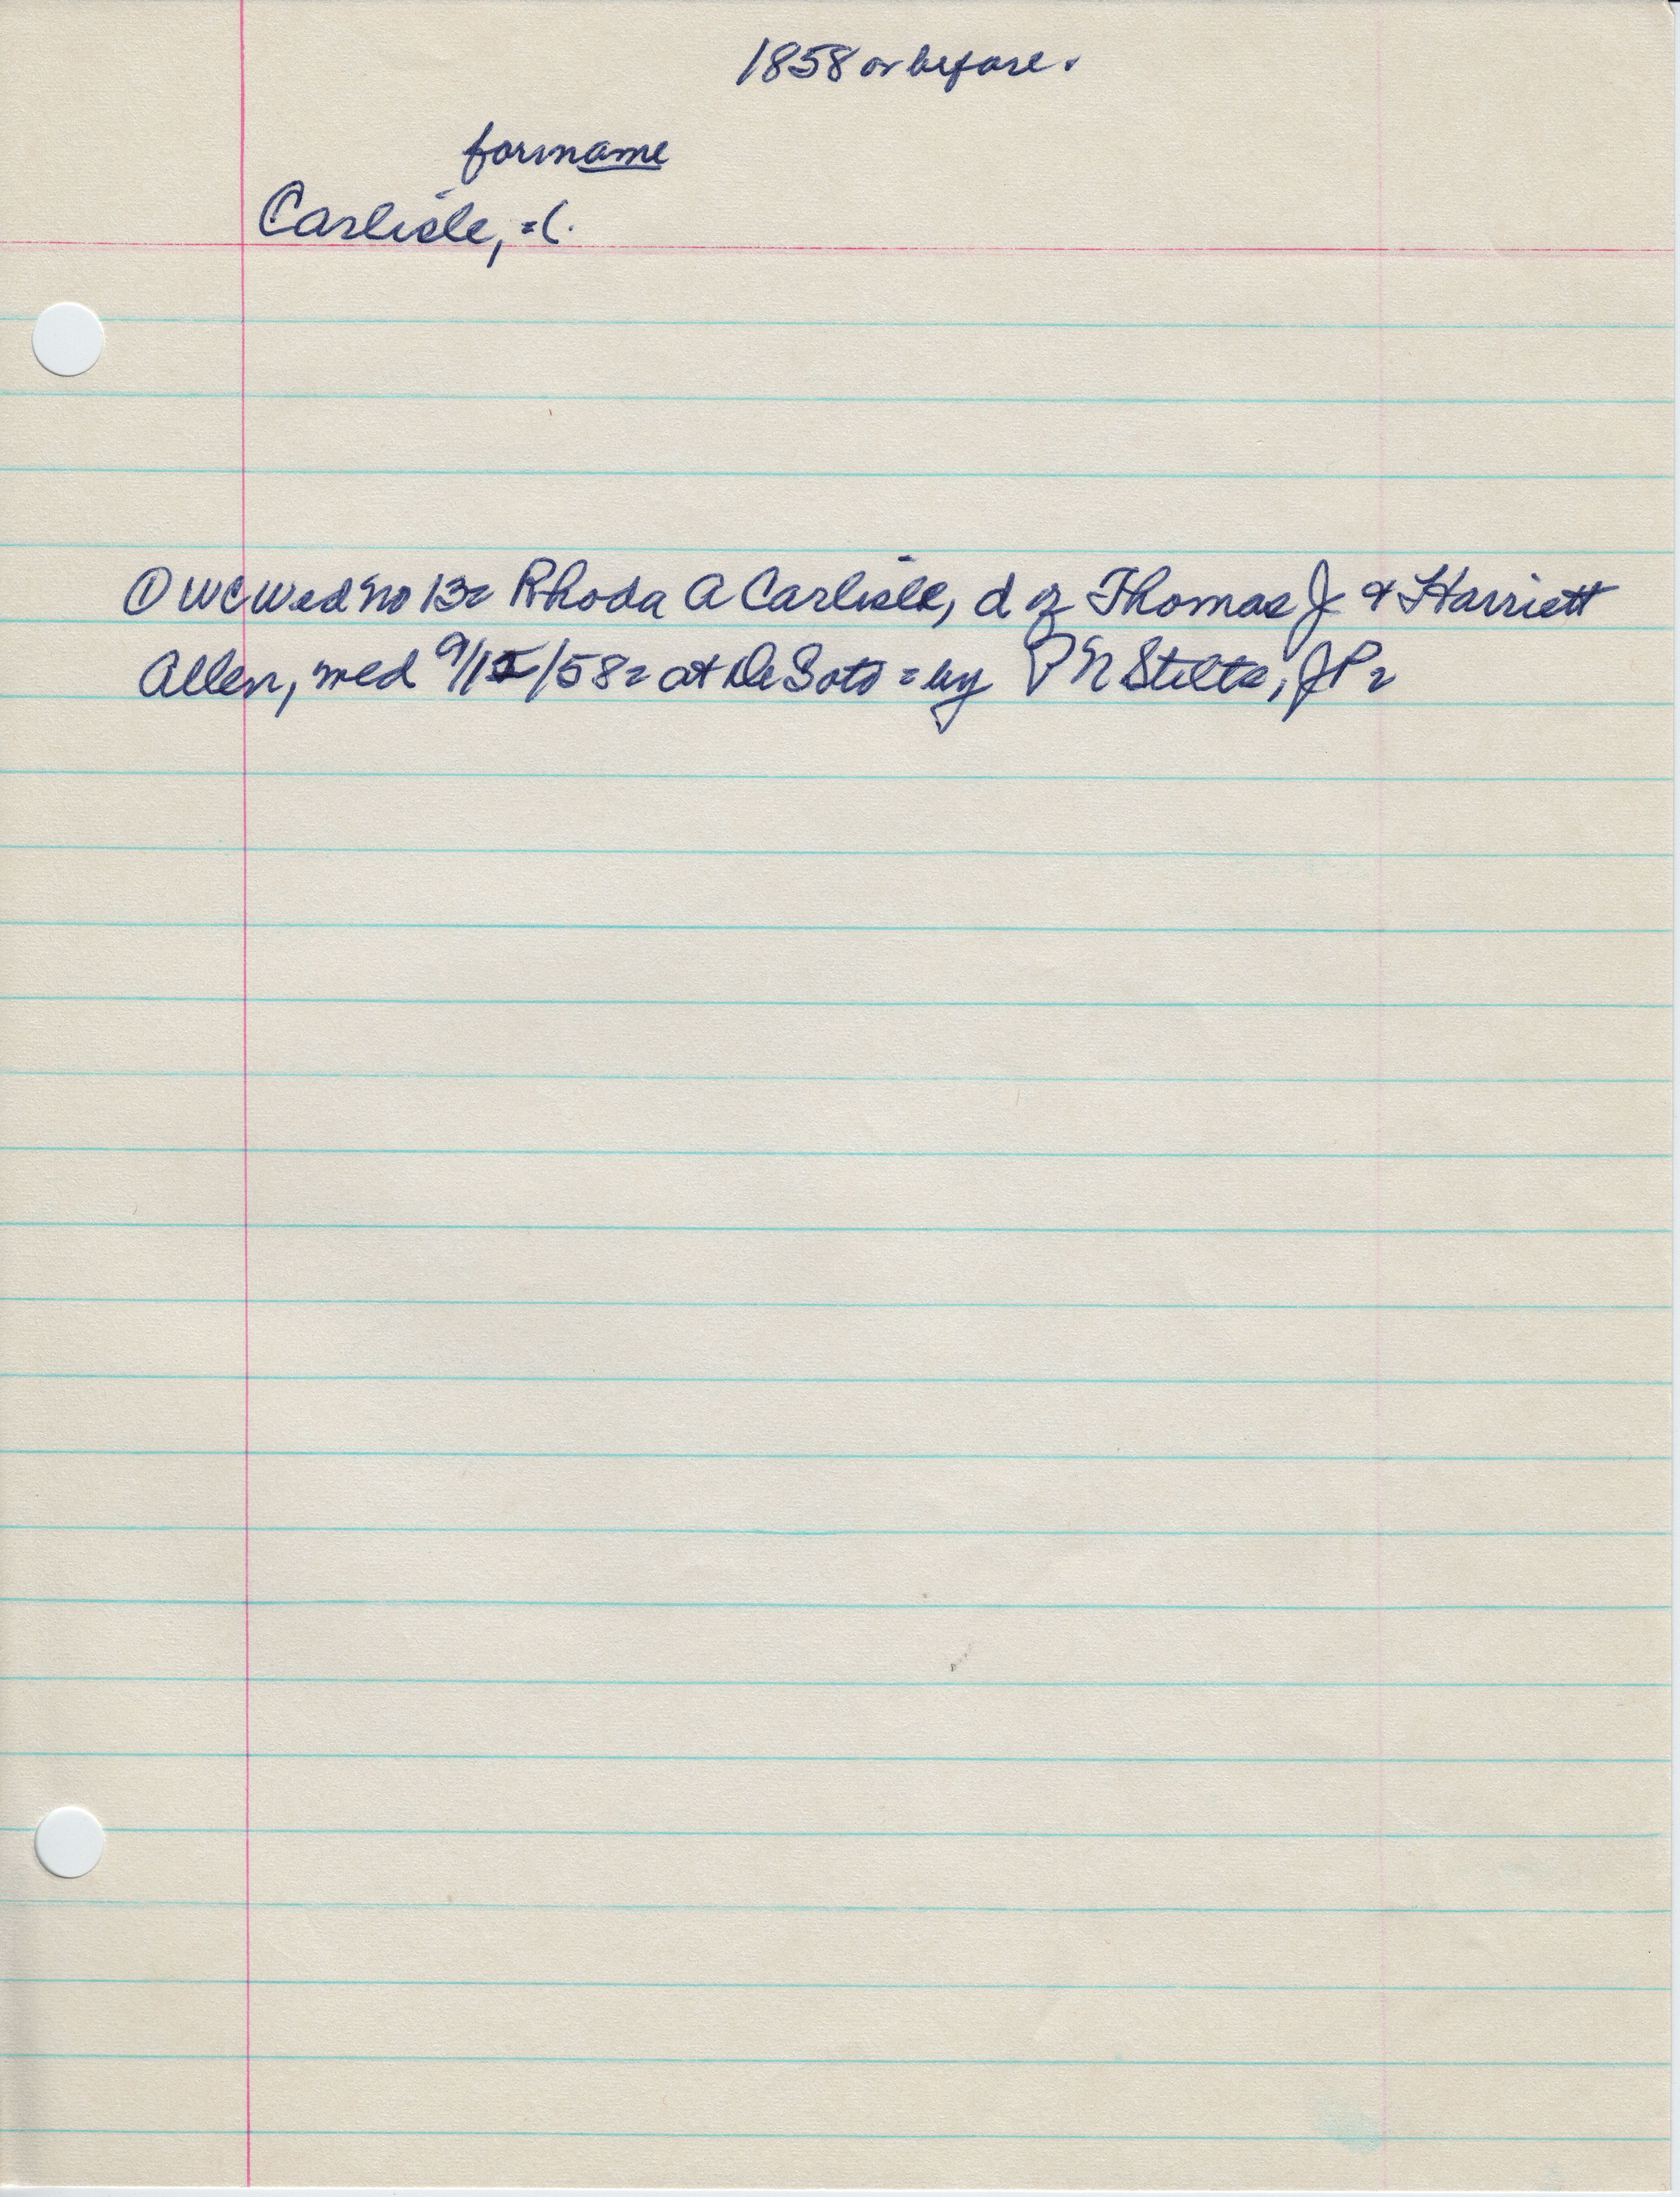 1858 or before.
forname
Carlisle, = (.
① WC Wed No 13 = Rhoda A Carlisle, d of Thomas J & Harriett
Allen, wed 9/15/58 = at De Soto = by P N Stilts, JP =